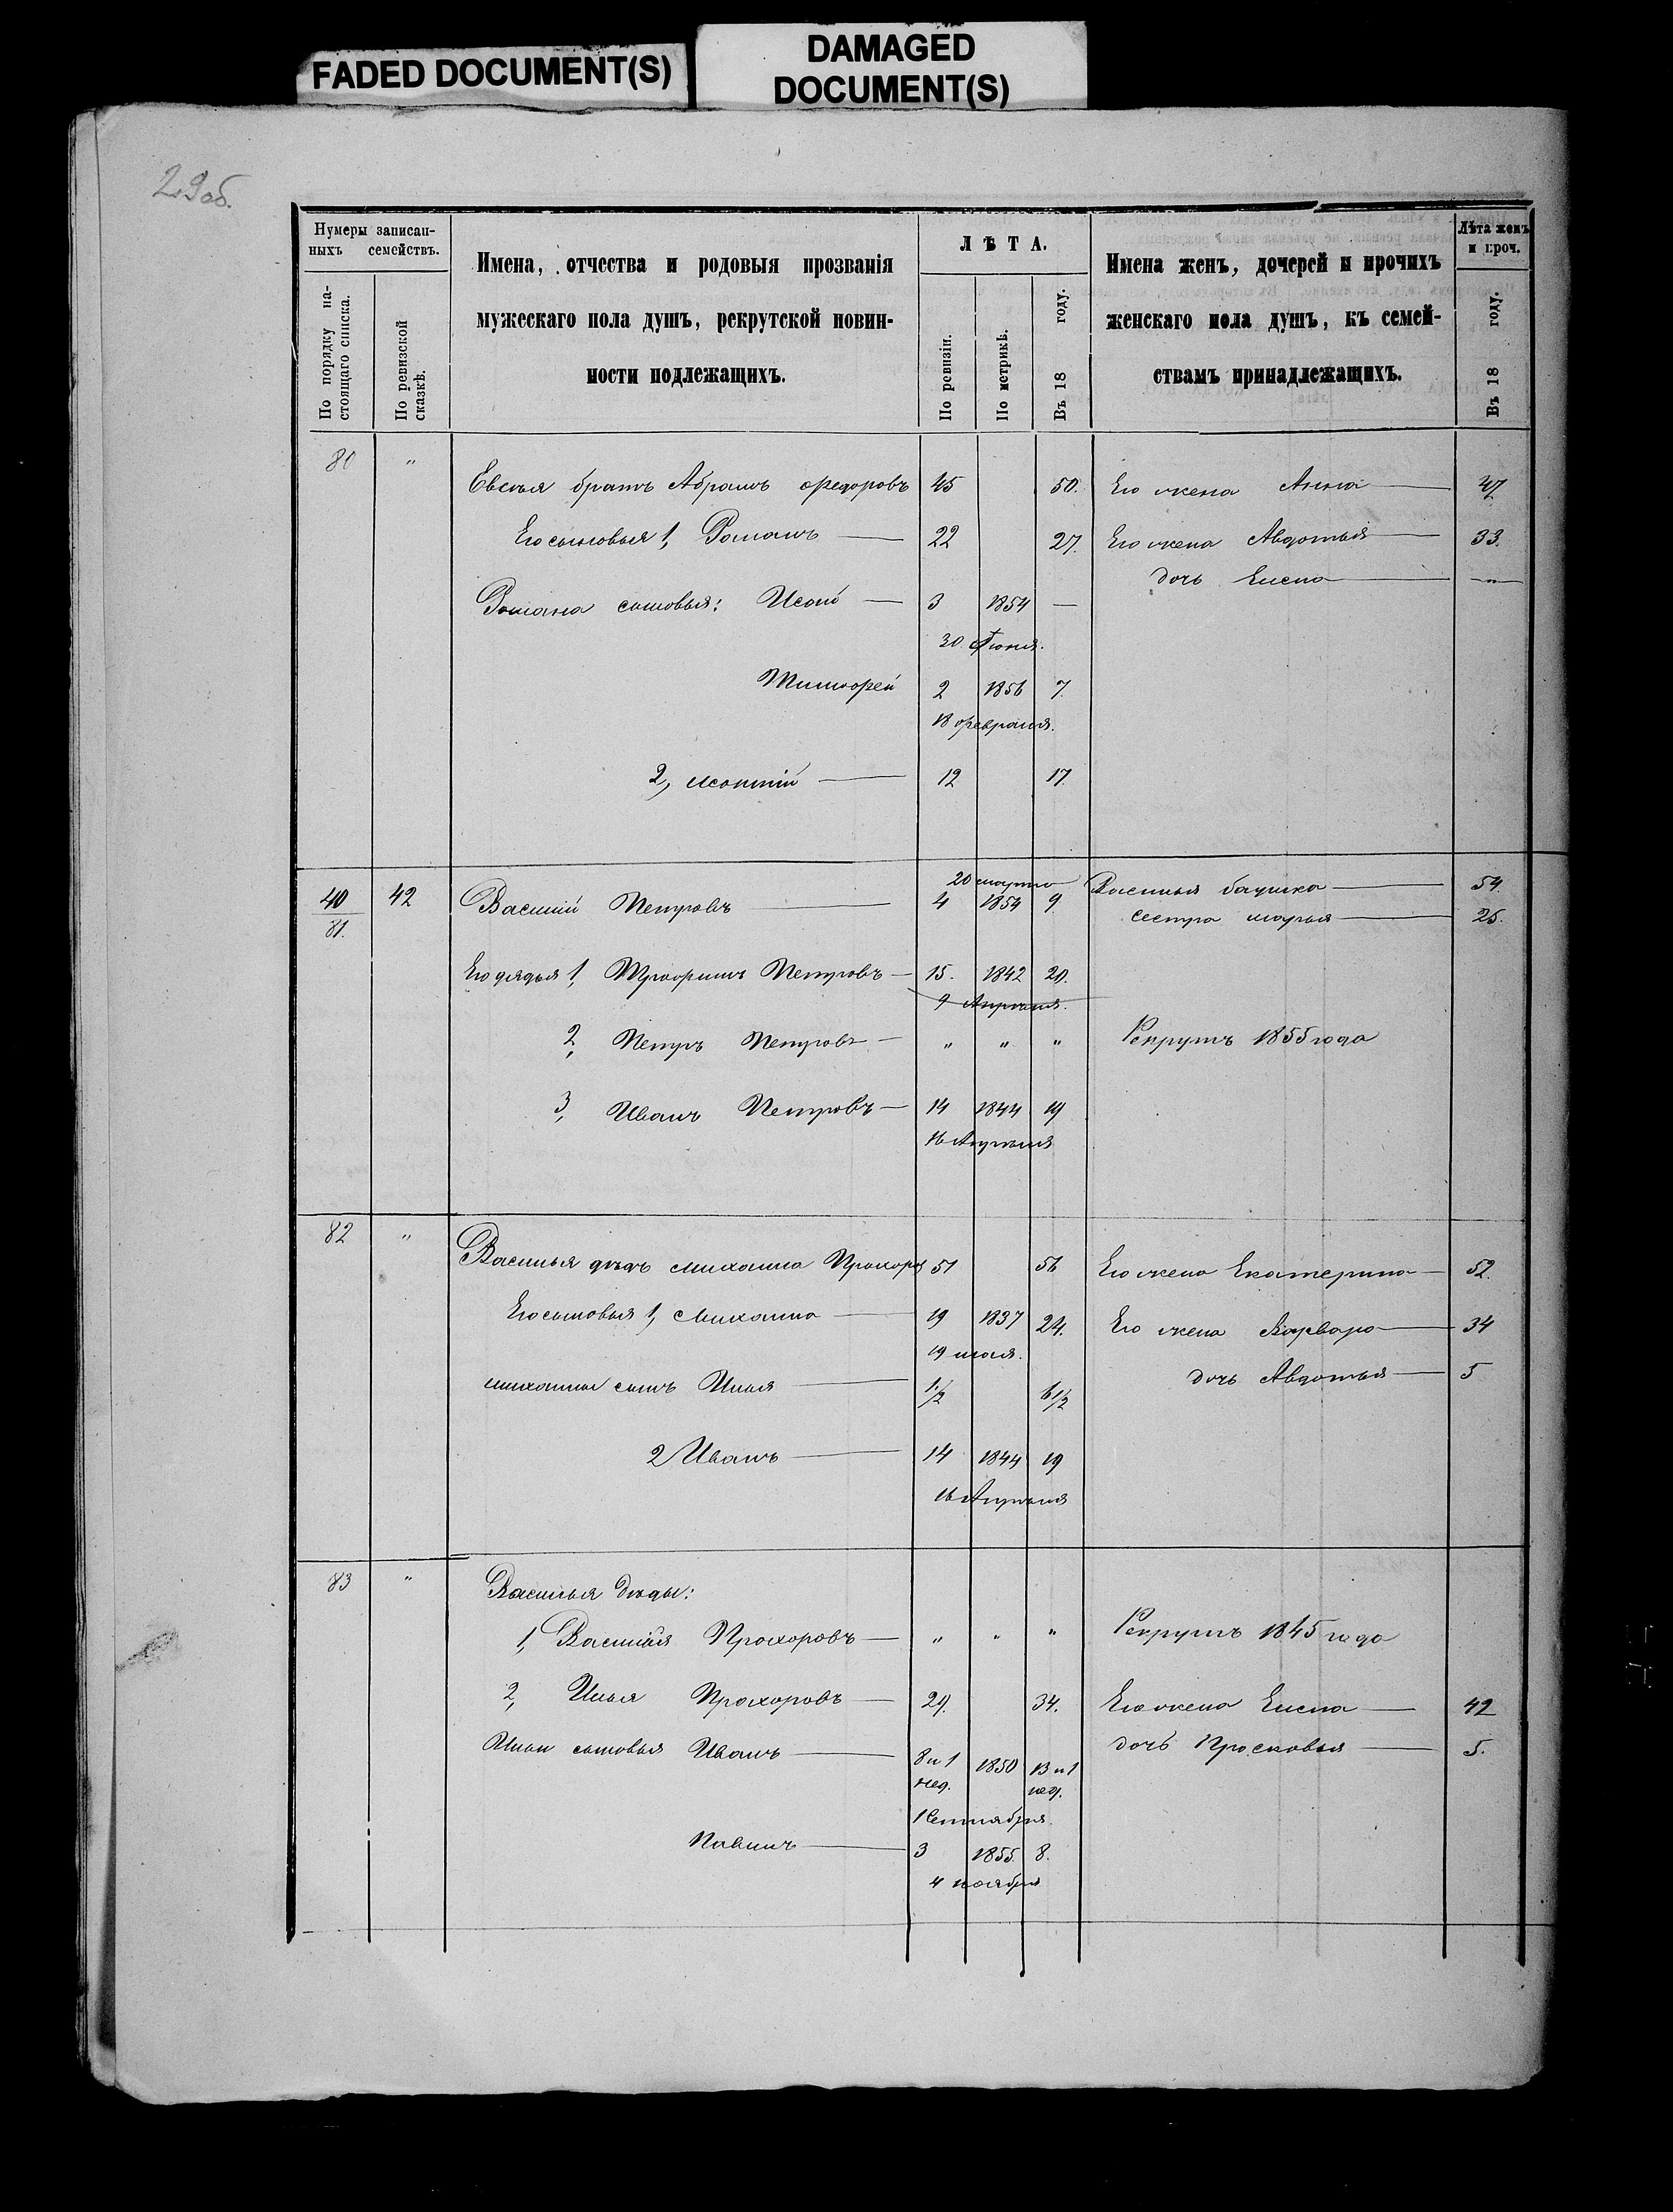 FADED DOCUMENT(S)
DAMAGED
DOCUMENT(S)
29 об.
Нумеры записан-
ныхъ семействъ.
По порядку на-
стоящаго списка.
По ревизской
сказкѣ.
Имена, отчества и родовыя прозванія
мужескаго пола душъ, рекрутской повин-
ности подлежащихъ.
ЛѢТА.
По ревизіи.
По метрикѣ.
Въ 18 году.
Имена женъ, дочерей и прочихъ
женскаго пола душъ, къ семей-
ствамъ принадлежащихъ.
Лѣта женъ
и проч.
Въ 18 году.
80 " Евсѣя братъ Абрамъ Федоровъ 45 50. Его жена Анна 47
Его сыновья 1, Романъ 22 27. Его жена Авдотья 33.
дочь Елена "
Романа сыновья: Исай 3 1854 —
30 Іюня.
Тимофей 2 1856 7.
18 февраля.
2, 12 17
20 марта
40 42 Василій Петровъ 4 1854 9 Василья бабушка 54.
81. сестра Марья 25.
Его дядья 1, Трофимъ Петровъ 15. 1842 20.
9 Апрѣля.
2, Петръ Петровъ " " " Рекрутъ 1855 года
3, Иванъ Петровъ 14 1844 19
16 Апрѣля
82 " Василья дѣдъ Михаила Прохоръ 51 56 Его жена Екатерина 52.
Его сыновья 1, Михаила 19 1837 24. Его жена Варвара 34
19 мая.
Михайлы сынъ Илья 1/2 6 1/2 дочь Авдотья 5
2 Иванъ 14 1844 19
16 Апрѣля
83 " Василья дѣды:
1, Василья Прохоровъ " " " Рекрутъ 1845 года
2, Илья Прохоровъ 29. 34. Его жена Елена 42
Ильи сыновья Иванъ 8 и 1 1850 13 и 1 дочь Просковья 5.
нед. нед.
1 Сентября.
Павилъ 3 1855. 8.
4 ноября